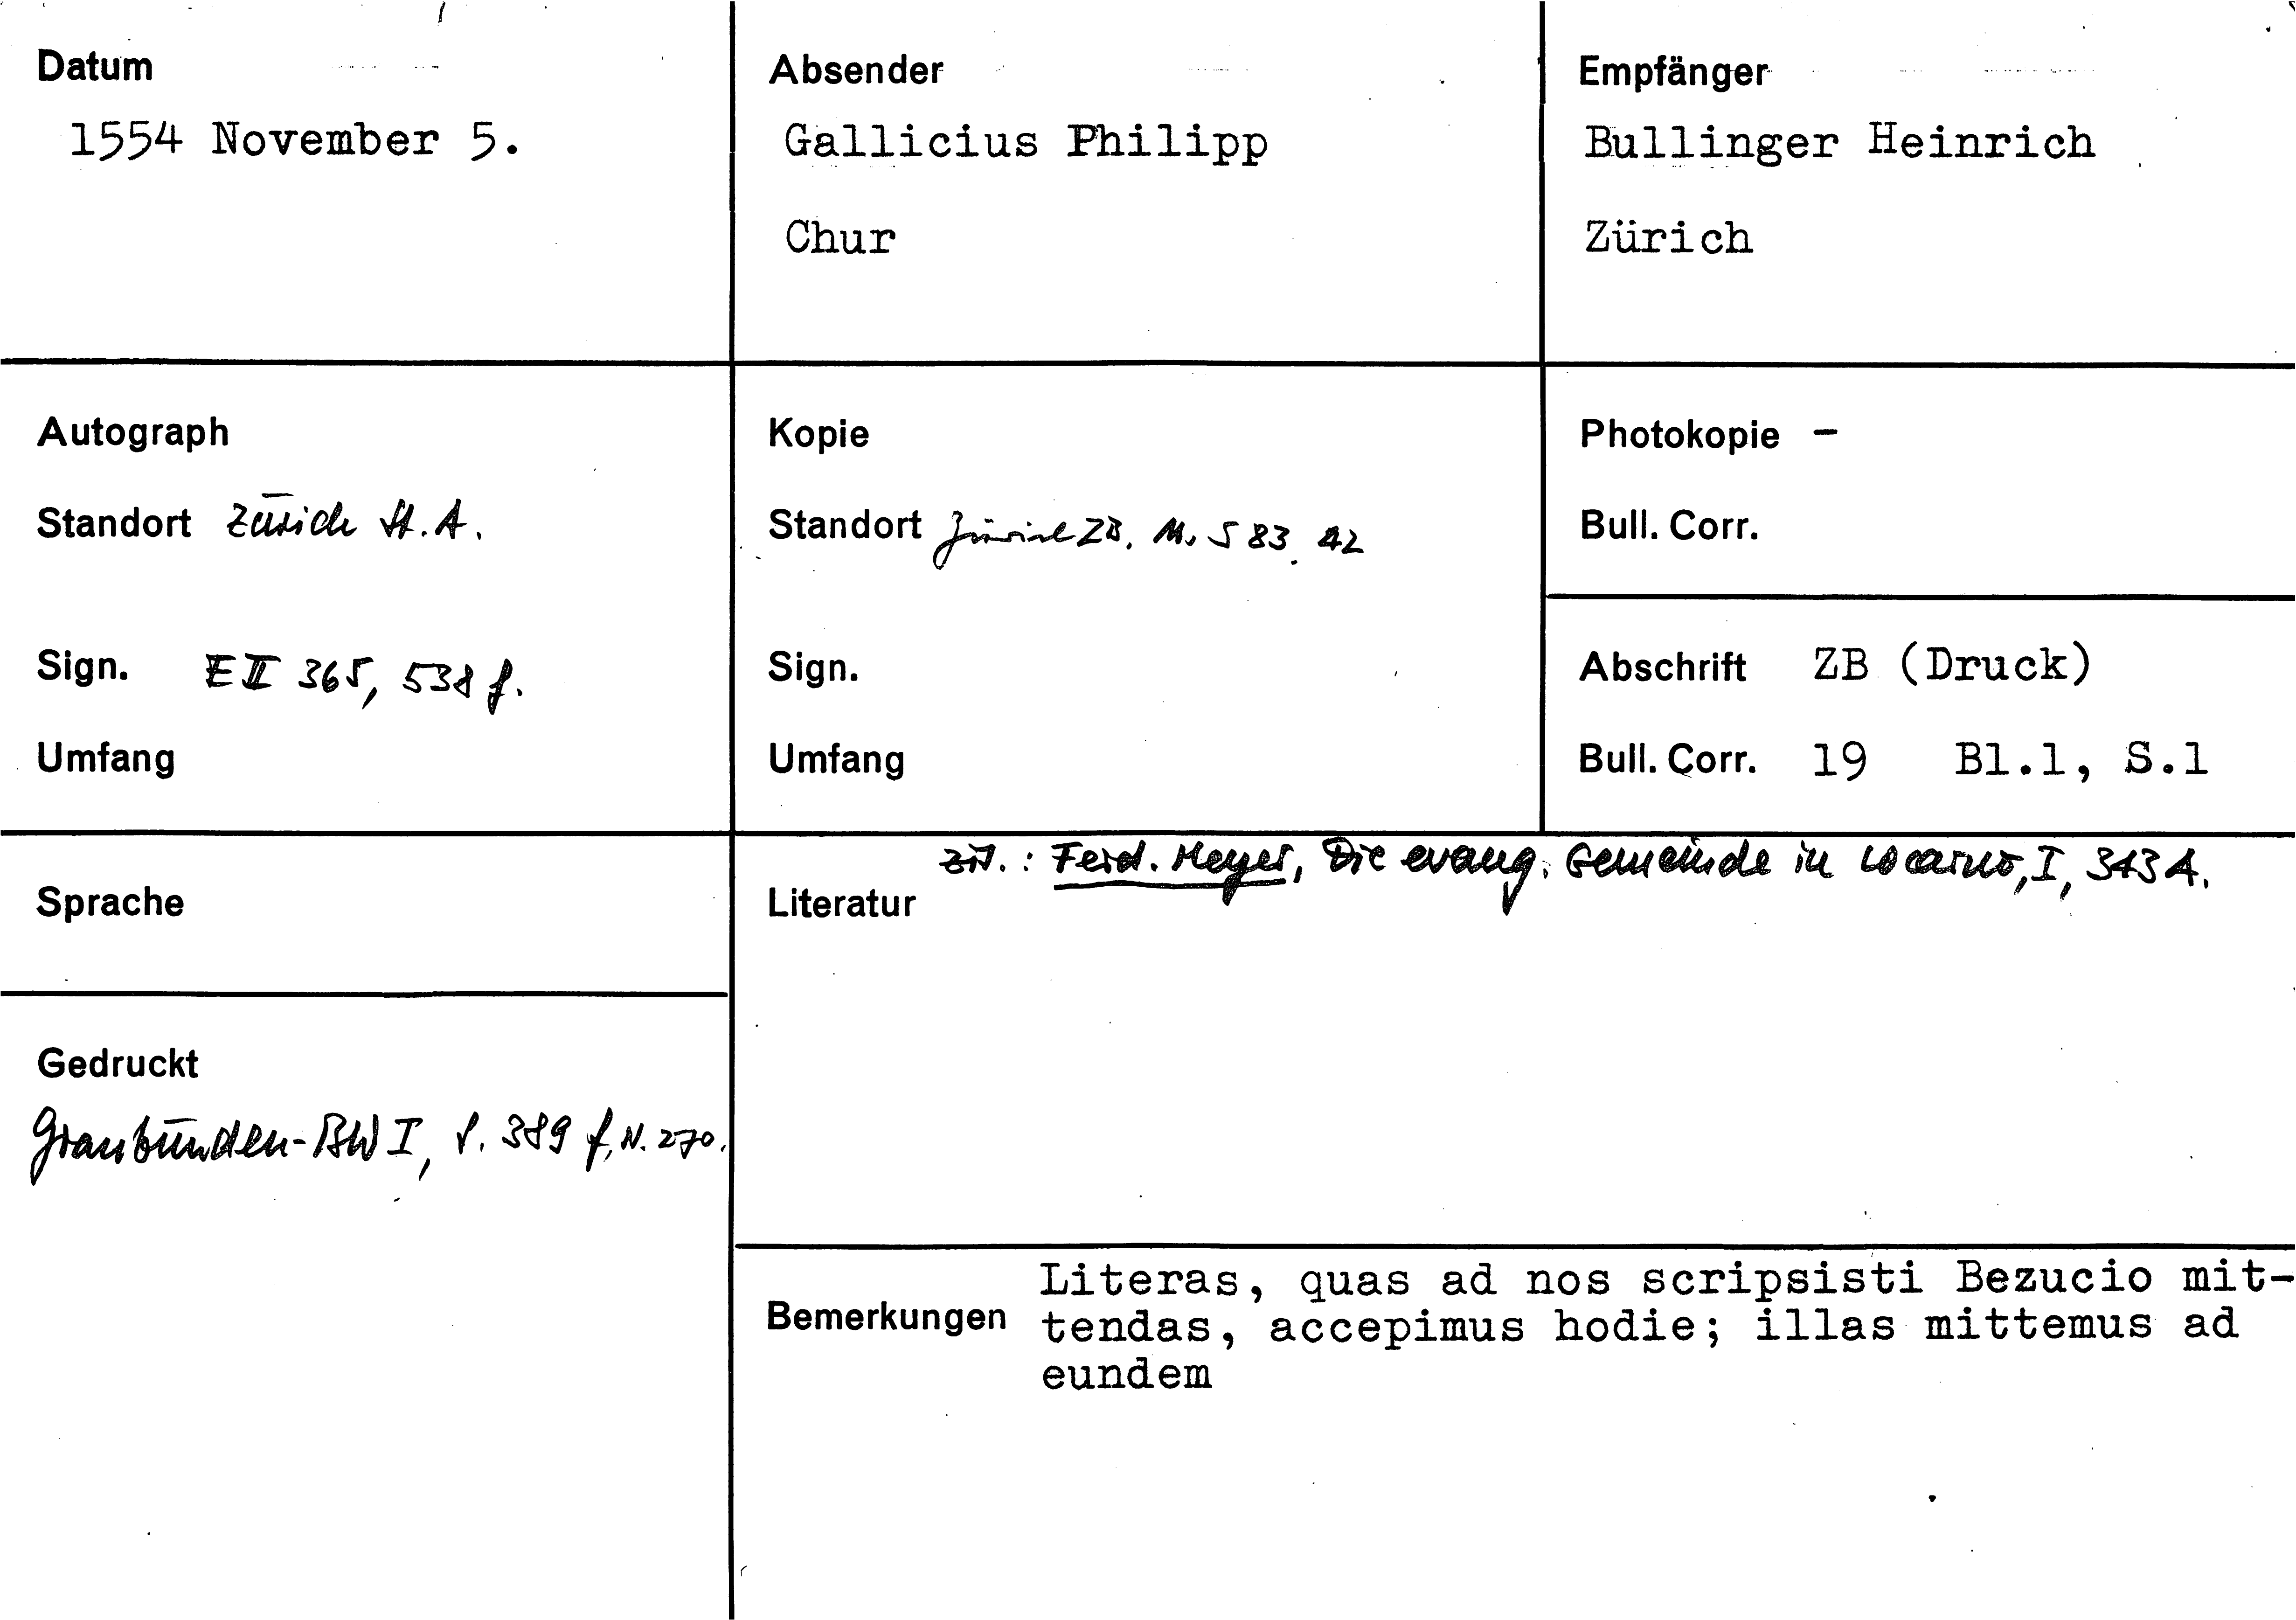 Datum
1554 November 5.
Absender
Gallicius Philipp
Chur
Empfänger
Bullinger Heinrich
Zürich
Autograph
Standort Zürich St.A.
Sign. E II 365, 538 f.
Umfang
Kopie
Standort Zürich ZB, Ms S 83, 42
Sign.
Umfang
Photokopie -
Bull. Corr.
Abschrift ZB (Druck)
Bull. Corr. 19 Bl.1, S.1
Sprache
Gedruckt
Graubünden-BW I, S. 389 f, N. 270.
zit.: Ferd. Meyer, Die evang. Gemeinde in Locarno, I, 343 A.
Literatur
Bemerkungen
Literas, quas ad nos scripsisti Bezucio mit-
tendas, accepimus hodie; illas mittemus ad
eundem